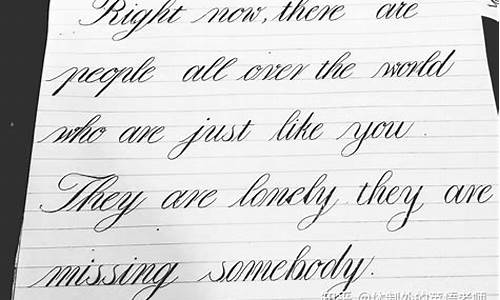 Right now, there are
people all over the world
who are just like you.
They are lonely they are
missing somebody.